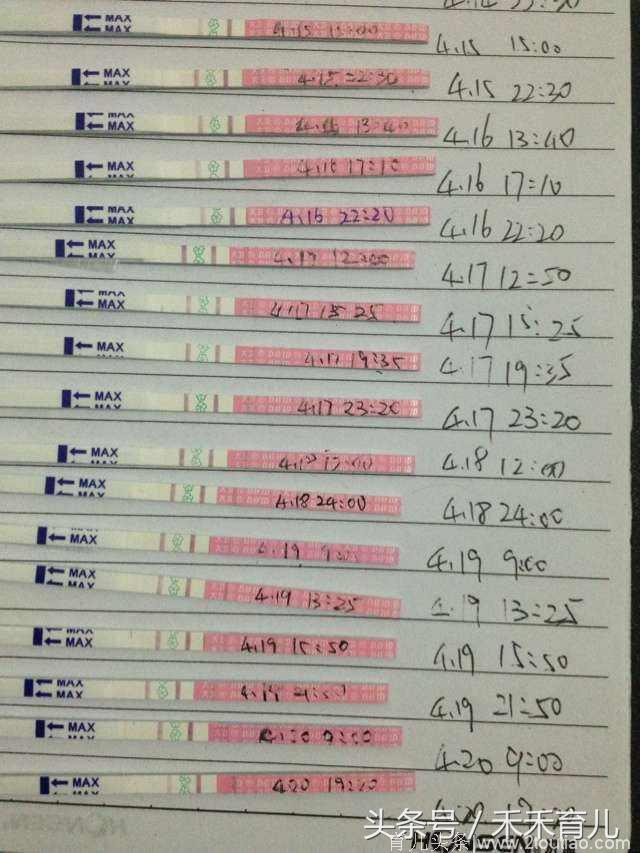 MAX 4.15 15:00 4.15 15:00
MAX 4.15 22:30 4.15 22:30
MAX 4.16 13:40 4.16 13:40
MAX 4.16 17:10 4.16 17:10
MAX 4.16 22:20 4.16 22:20
MAX 4.17 4.17 12:50
MAX 4.17 15 25 4.17 15:25
MAX 4.17 19:35 4.17 19:35
MAX 4.17 23:20 4.17 23:20
MAX 4.18 4.18 12:00
MAX 4.18 24:00 4.18 24:00
MAX 4.19 4.19 9:00
MAX 4.19 13:25 4.19 13:25
MAX 4.19 15:50 4.19 15:50
MAX 4.19 21:50
MAX 4.20 9:00
MAX 4.20
头条号／禾禾育儿
育儿头条 www.21outiao.com